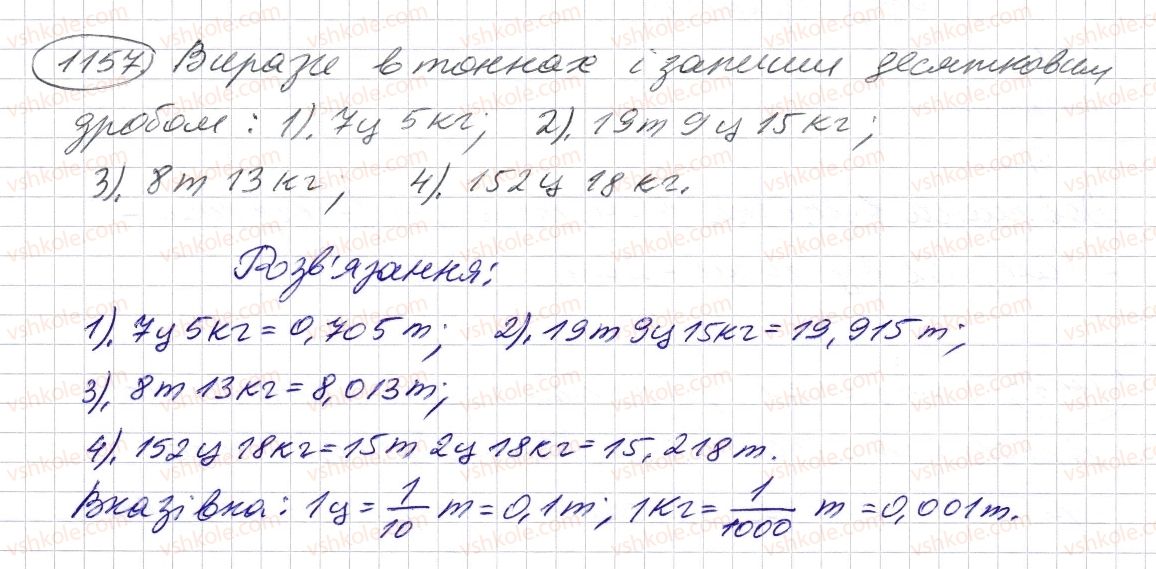 1157. Вирази в тоннах і запиши десятковим
дробом: 1). 7ц 5кг; 2). 19т 9ц 15кг;
3). 8т 13кг; 4). 152ц 18кг.
Розв'язання:
1). 7ц 5кг = 0,705т; 2). 19т 9ц 15кг = 19,915т;
3). 8т 13кг = 8,013т;
4). 152ц 18кг = 15т 2ц 18кг = 15,218т.
Вказівка: 1ц = 1/10 т = 0,1т; 1кг = 1/1000 т = 0,001т.